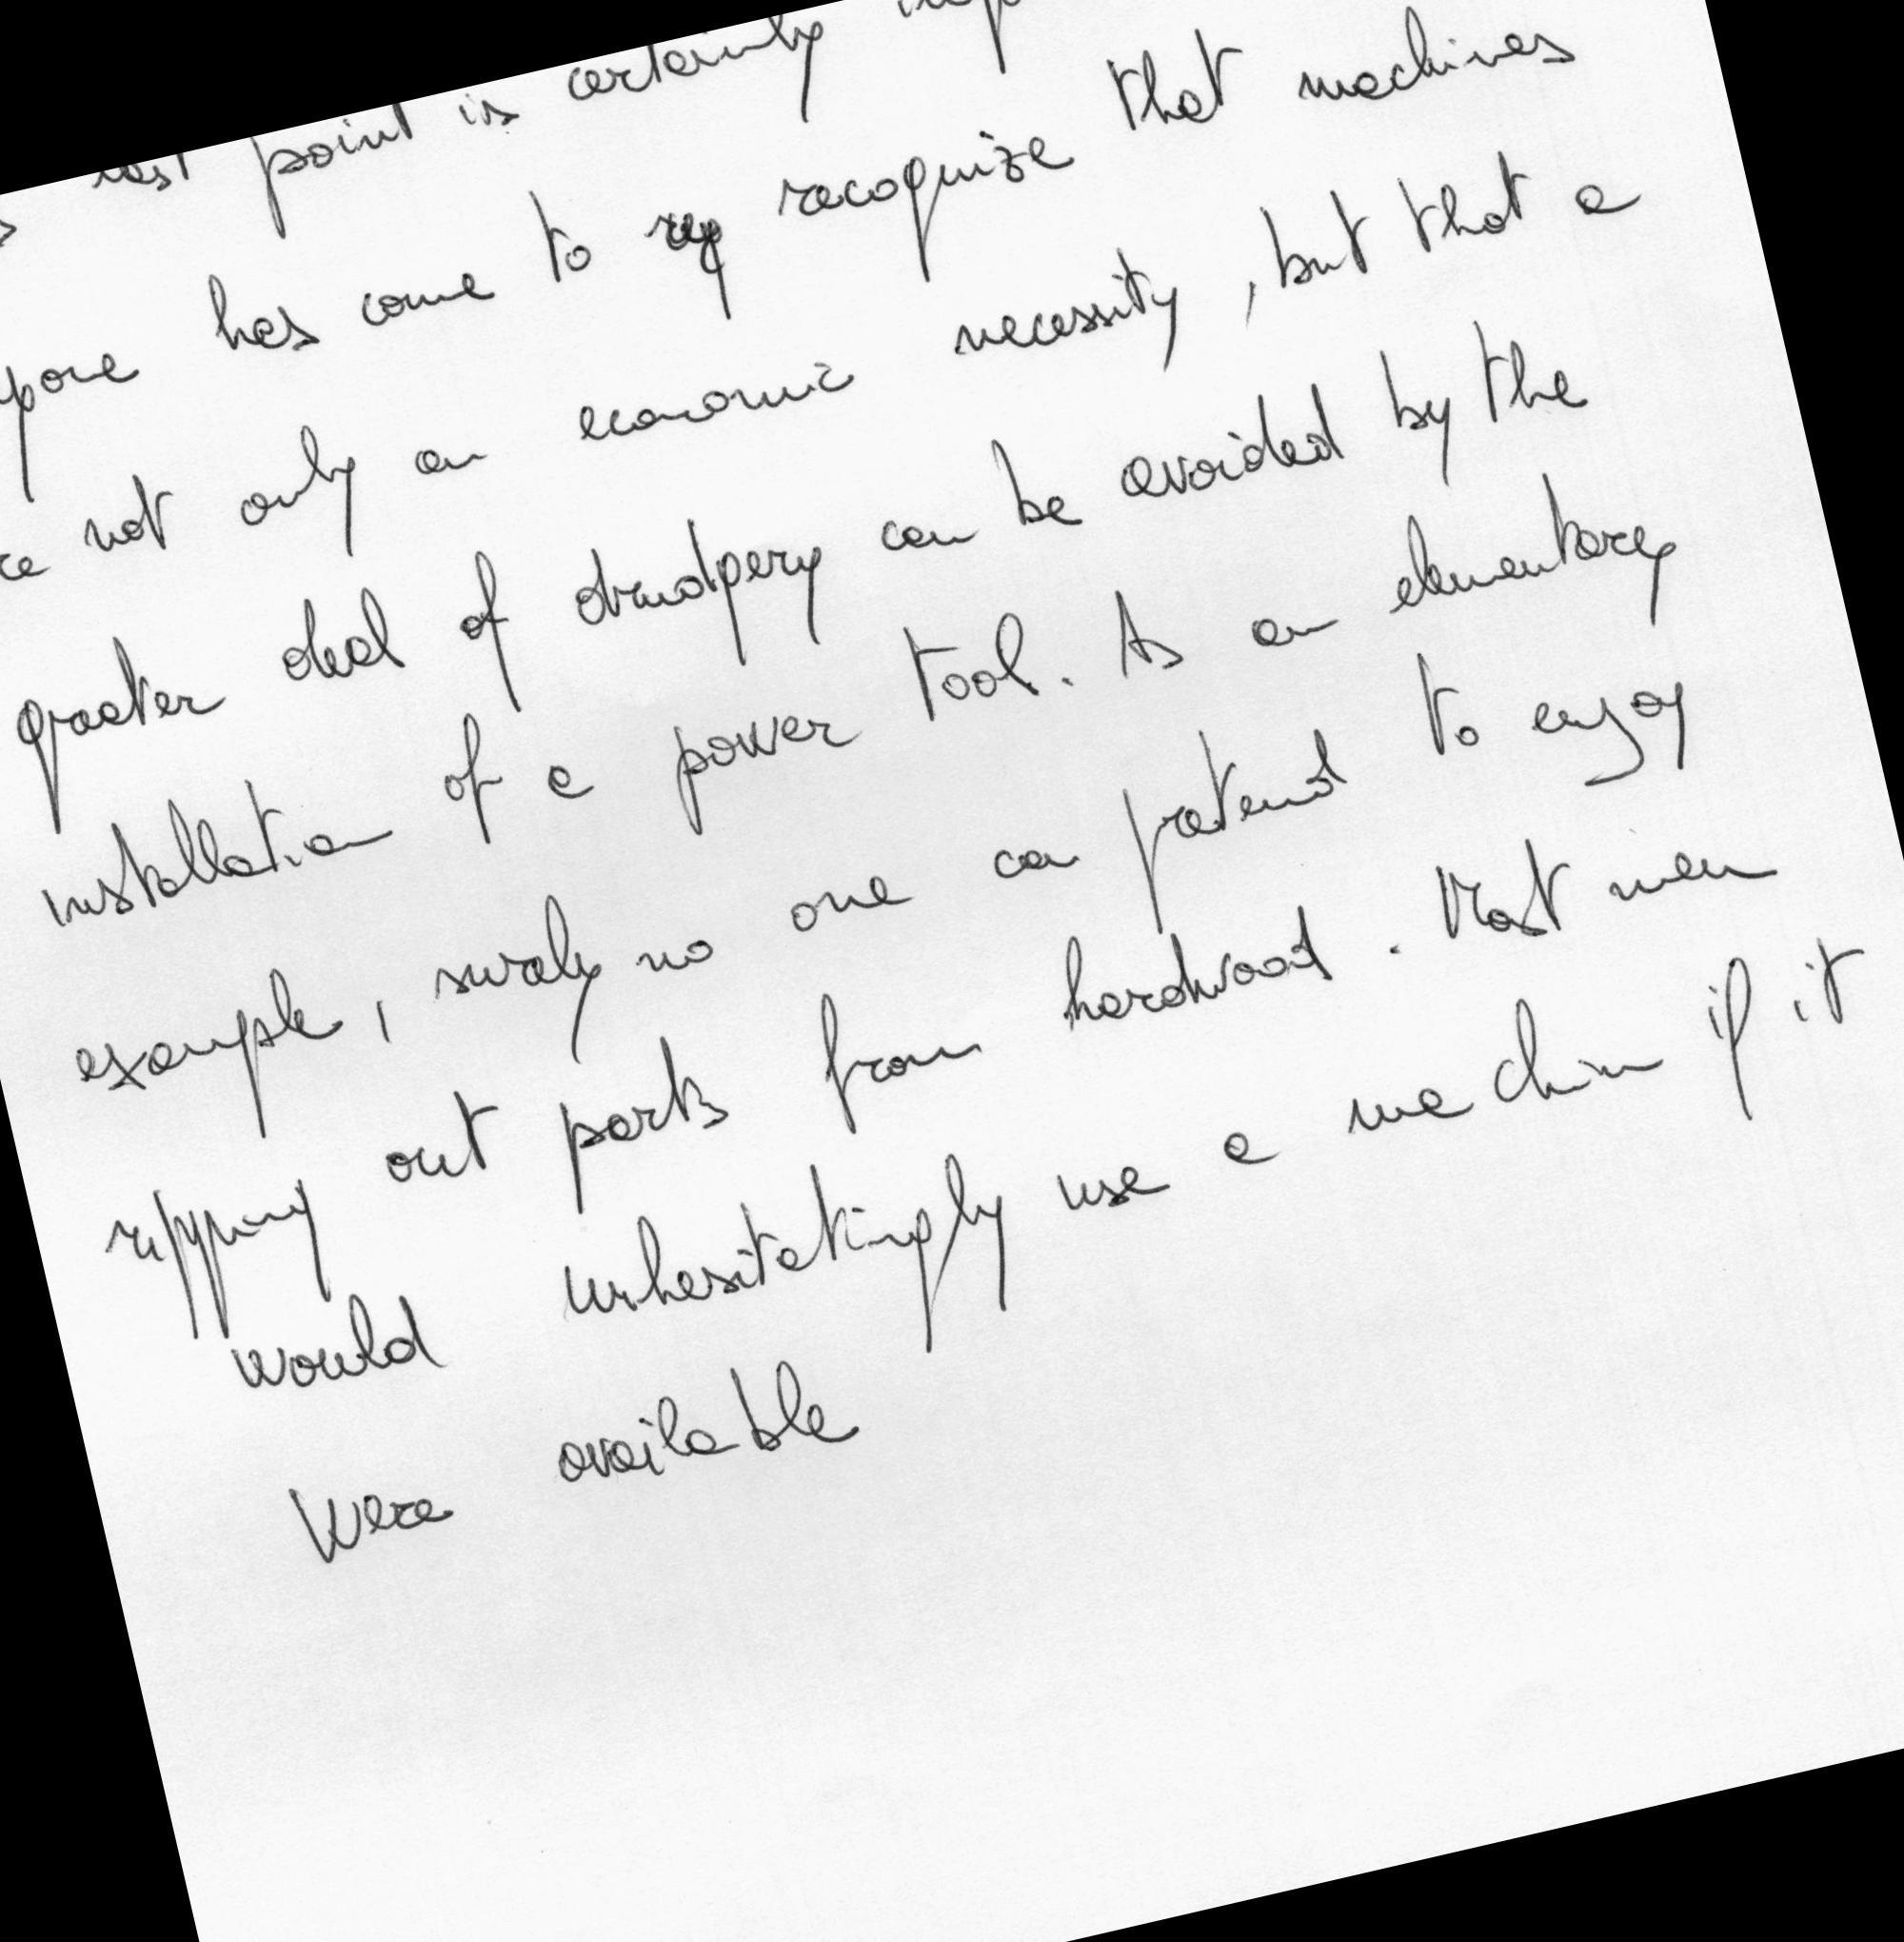 last point is certainly
has come to recognize that machines
not only an economic necessity, but that a
greater deal of drudgery can be avoided by the
installation of a power tool. As an elementary
example, surely no one can pretend to enjoy
ripping out parts from hardwood. Most men
would unhesitatingly use a machine if it
were available